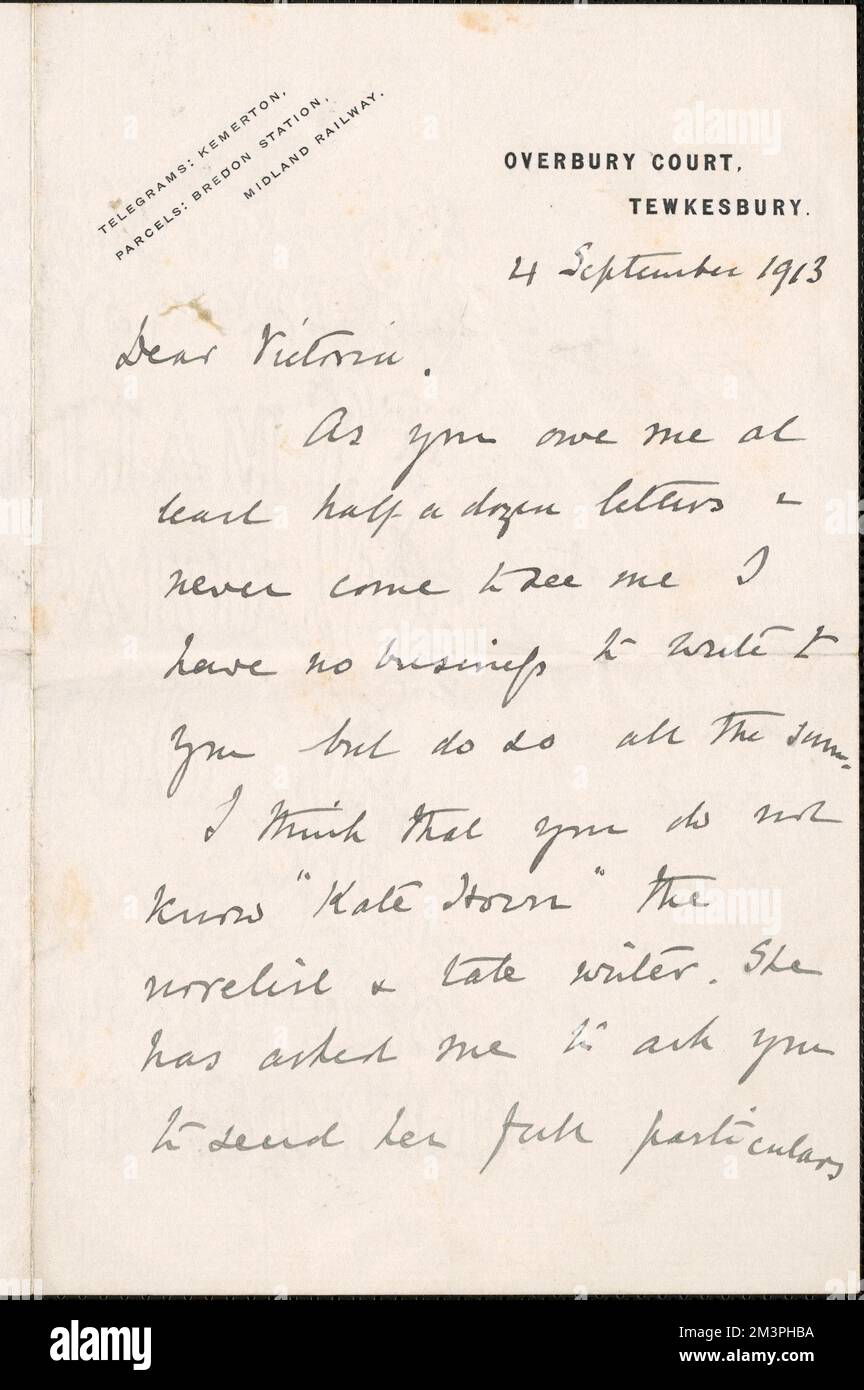 TELEGRAMS: KEMERTON,
PARCELS: BREDON STATION,
MIDLAND RAILWAY.
OVERBURY COURT,
TEWKESBURY.
4 September 1913
Dear Victoria.
As you owe me at
least half a dozen letters &
never come to see me I
have no business to write to
you but do so all the same.
I think that you do not
know "Kate Horn" the
novelist & tale writer. She
has asked me to ask you
to send her full particulars
alamy
Image ID: 2M3PHBA
www.alamy.com